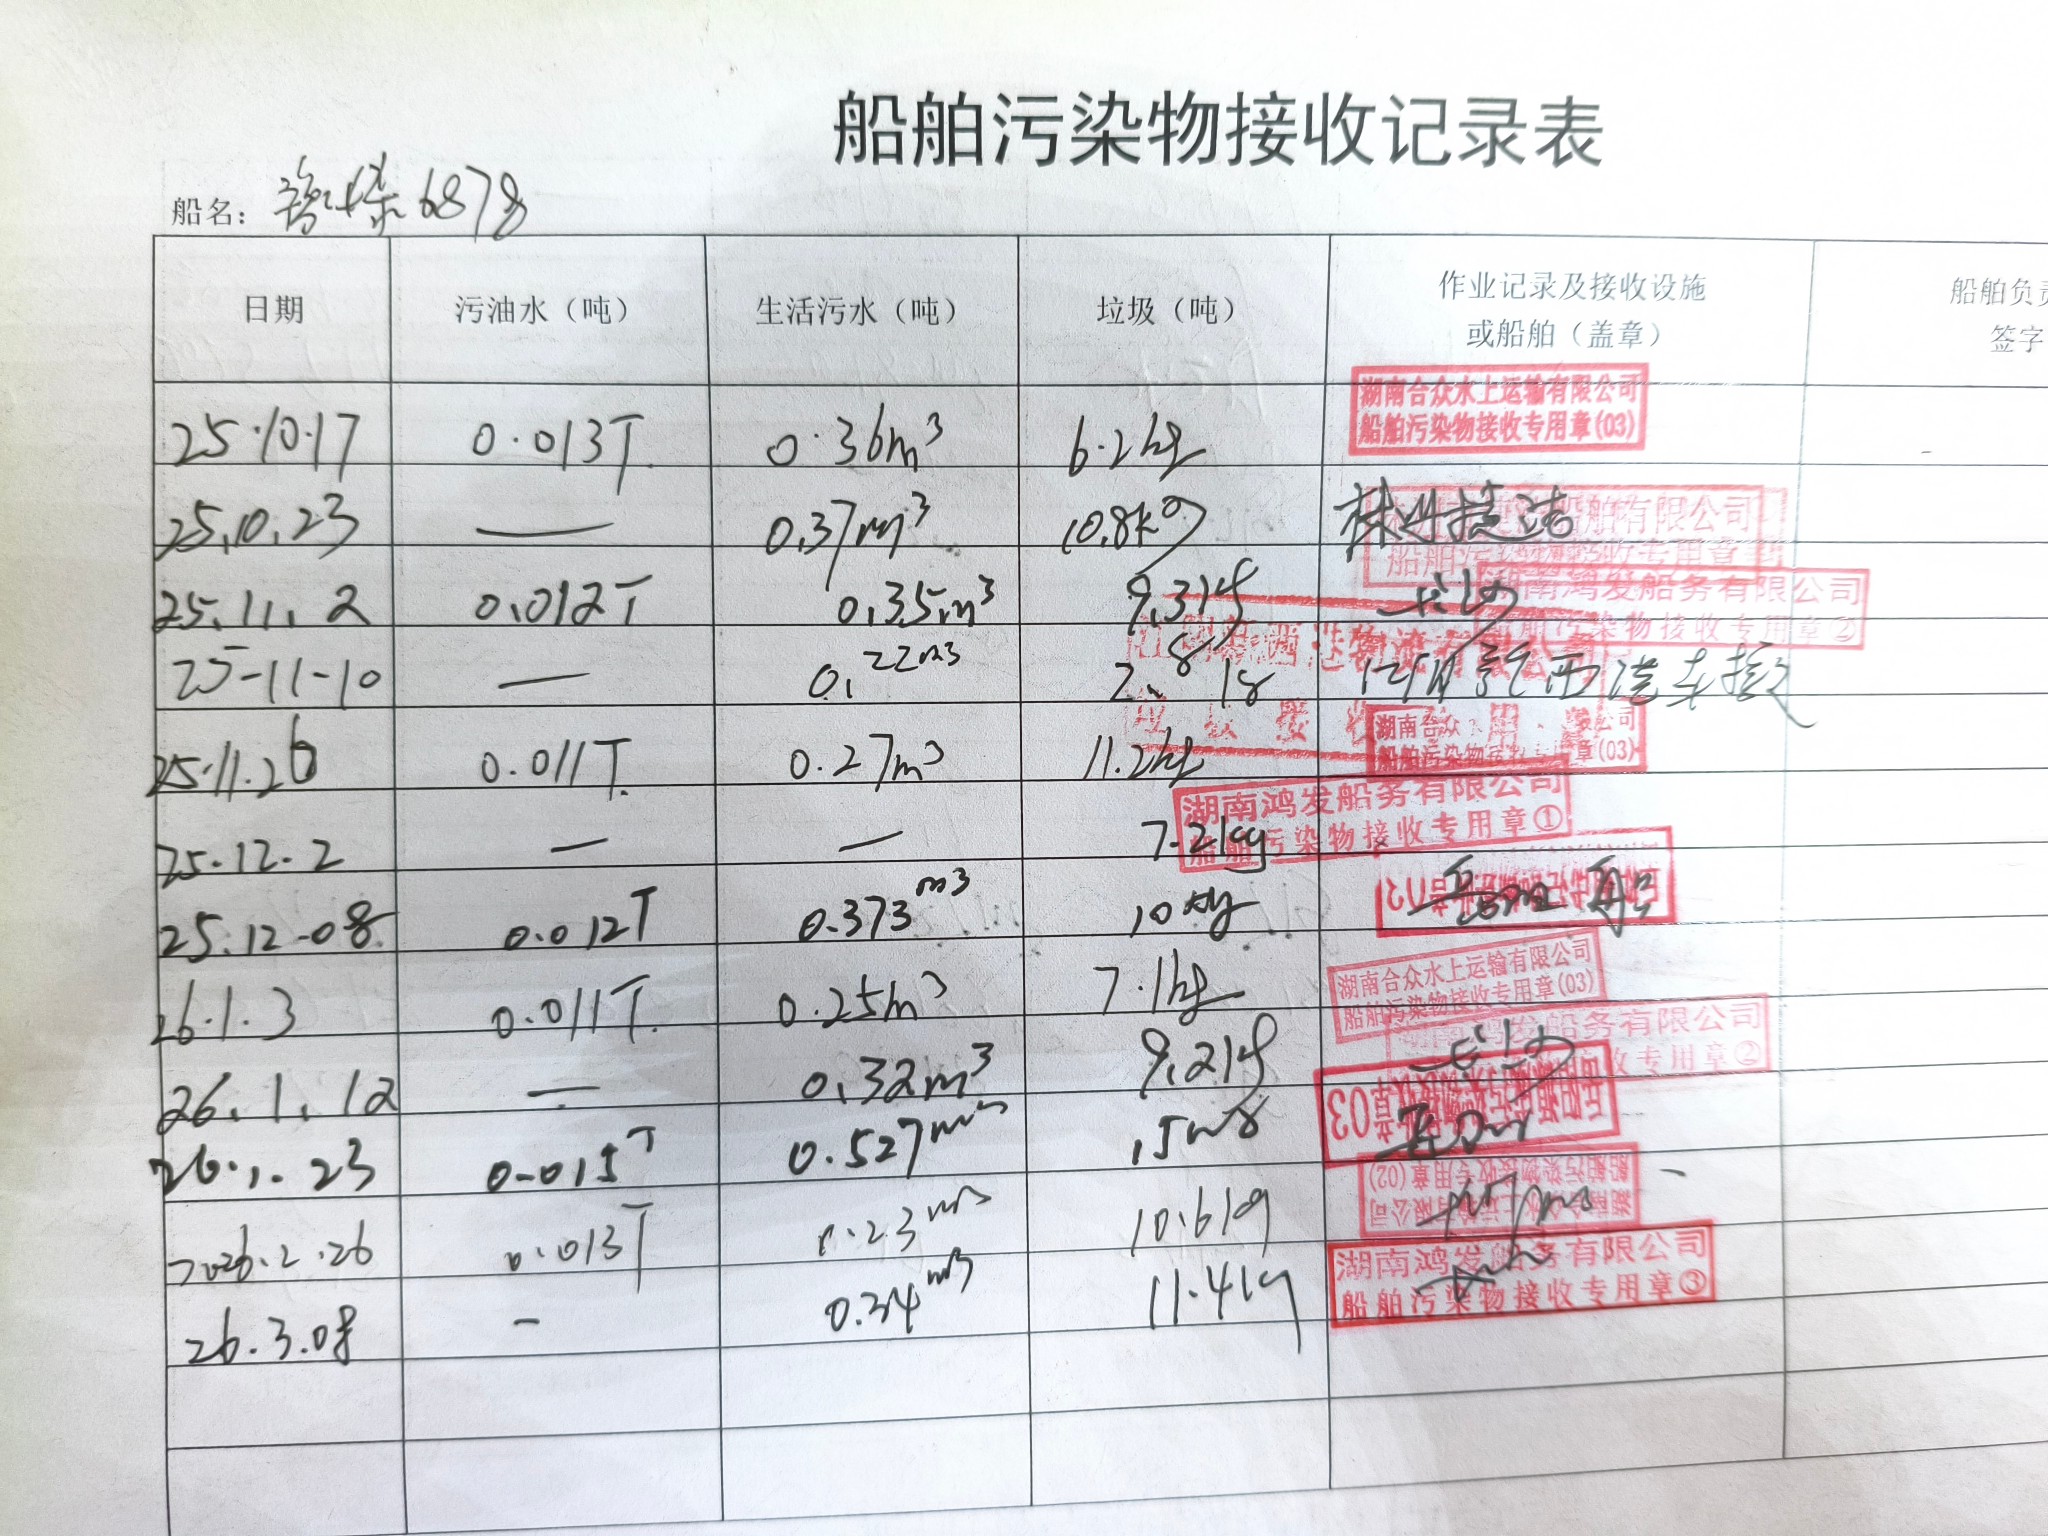 船舶污染物接收记录表
船名： 6878
日期 污油水（吨） 生活污水（吨） 垃圾（吨） 作业记录及接收设施或船舶（盖章） 船舶负责 签字
25.10.17 0.013T 0.36m³ 6.2kg 湖南合众水上运输有限公司 船舶污染物接收专用章(03)
25.10.23 — 0.37m³ 10.8kg 船舶有限公司 船舶污染物接收专用章
25.11.2 0.012T 0.35m³ 9.3kg 长沙 湖南鸿发船务有限公司 船舶污染物接收专用章②
25-11-10 — 0.22m3 2.8kg
25.11.26 0.011T 0.27m³ 11.2kg 湖南合众 限公司 船舶污染物接收 章(03)
25.12.2 — — 7.2kg 湖南鸿发船务有限公司 船舶污染物接收专用章①
25.12.08 0.012T 0.373m3 10kg
26.1.3 0.011T 0.25m³ 7.1kg 湖南合众水上运输有限公司 船舶污染物接收专用章(03)
26.1.12 — 0.32m³ 9.2kg 长沙 湖南鸿发船务有限公司 收专用章②
26.1.23 0.015T 0.527m³ 章03
2026.2.26 0.013T .23m³ 10.6kg 湖南合众水上运输有限公司 船舶污染物接收专用章(02)
26.3.08 - 0.34m3 11.4kg 湖南鸿发船务有限公司 船舶污染物接收专用章③